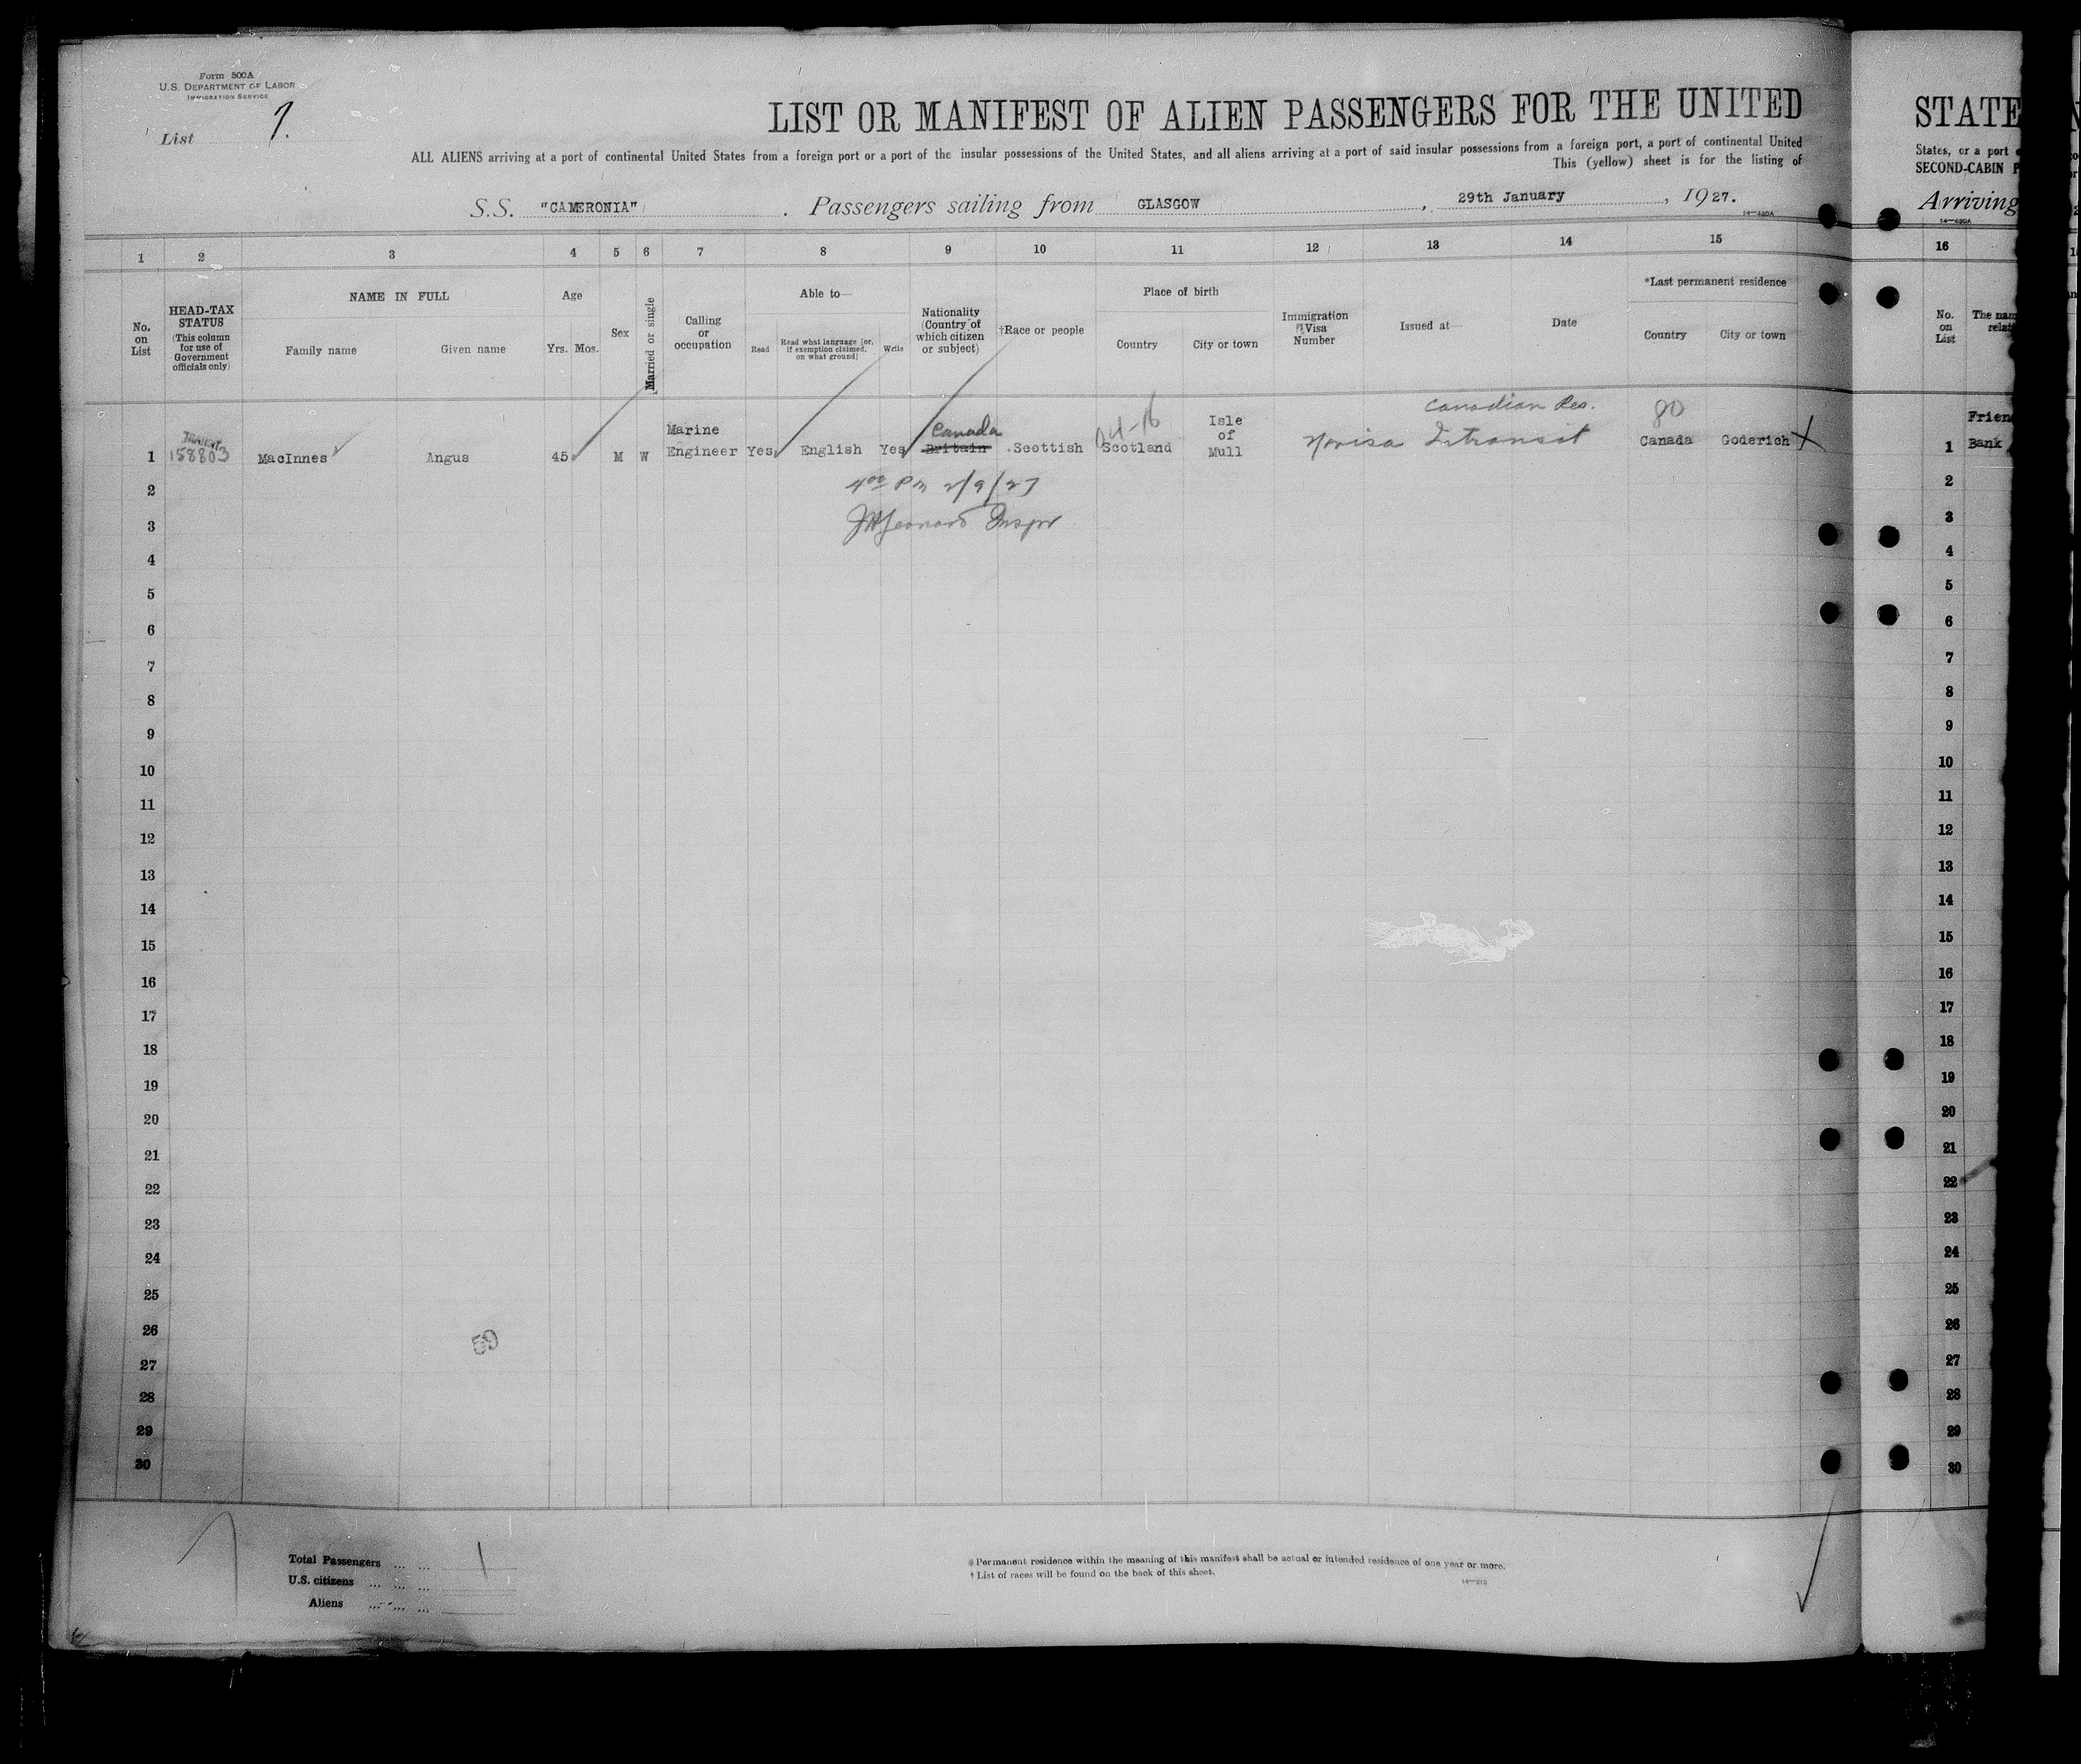 Form 500A
U.S. DEPARTMENT OF LABOR
IMMIGRATION SERVICE
List 7.
LIST OR MANIFEST OF ALIEN PASSENGERS FOR THE UNITED
ALL ALIENS arriving at a port of continental United States from a foreign port or a port of the insular possessions of the United States, and all aliens arriving at a port of said insular possessions from a foreign port, a port of continental United
This (yellow) sheet is for the listing of
S.S. "CAMERONIA". Passengers sailing from GLASGOW, 29th January, 1927.
14—480A
1 2 3 4 5 6 7 8 9 10 11 12 13 14 15
No. on List
HEAD-TAX STATUS (This column for use of Government officials only)
NAME IN FULL
Family name Given name
Age
Yrs. Mos.
Sex
Married or single
Calling or occupation
Able to—
Read
Read what language [or, if exemption claimed, on what ground]
Write
Nationality (Country of which citizen or subject)
†Race or people
Place of birth
Country City or town
Immigration Visa Number
Issued at—
Date
*Last permanent residence
Country City or town
Canadian Res. 80
Canada
1 158803 MacInnes Angus 45 M W Marine Engineer Yes English Yes Britain Scottish Scotland Isle of Mull No visa Intransit Canada Goderich X
2 4⁰⁰ PM 2/9/27
3 Leonard Inspr
4
5
6
7
8
9
10
11
12
13
14
15
16
17
18
19
20
21
22
23
24
25
26
59
27
28
29
30
Total Passengers ... ... 1
U.S. citizens ... ... ...
Aliens ... ... ...
* Permanent residence within the meaning of this manifest shall be actual or intended residence of one year or more.
† List of races will be found on the back of this sheet.
14—213
STATE
States, or a port
SECOND-CABIN P
Arriving
14—480A
16
No. on List
The nam
relat
Frien
1 Bank
2
3
4
5
6
7
8
9
10
11
12
13
14
15
16
17
18
19
20
21
22
23
24
25
26
27
28
29
30